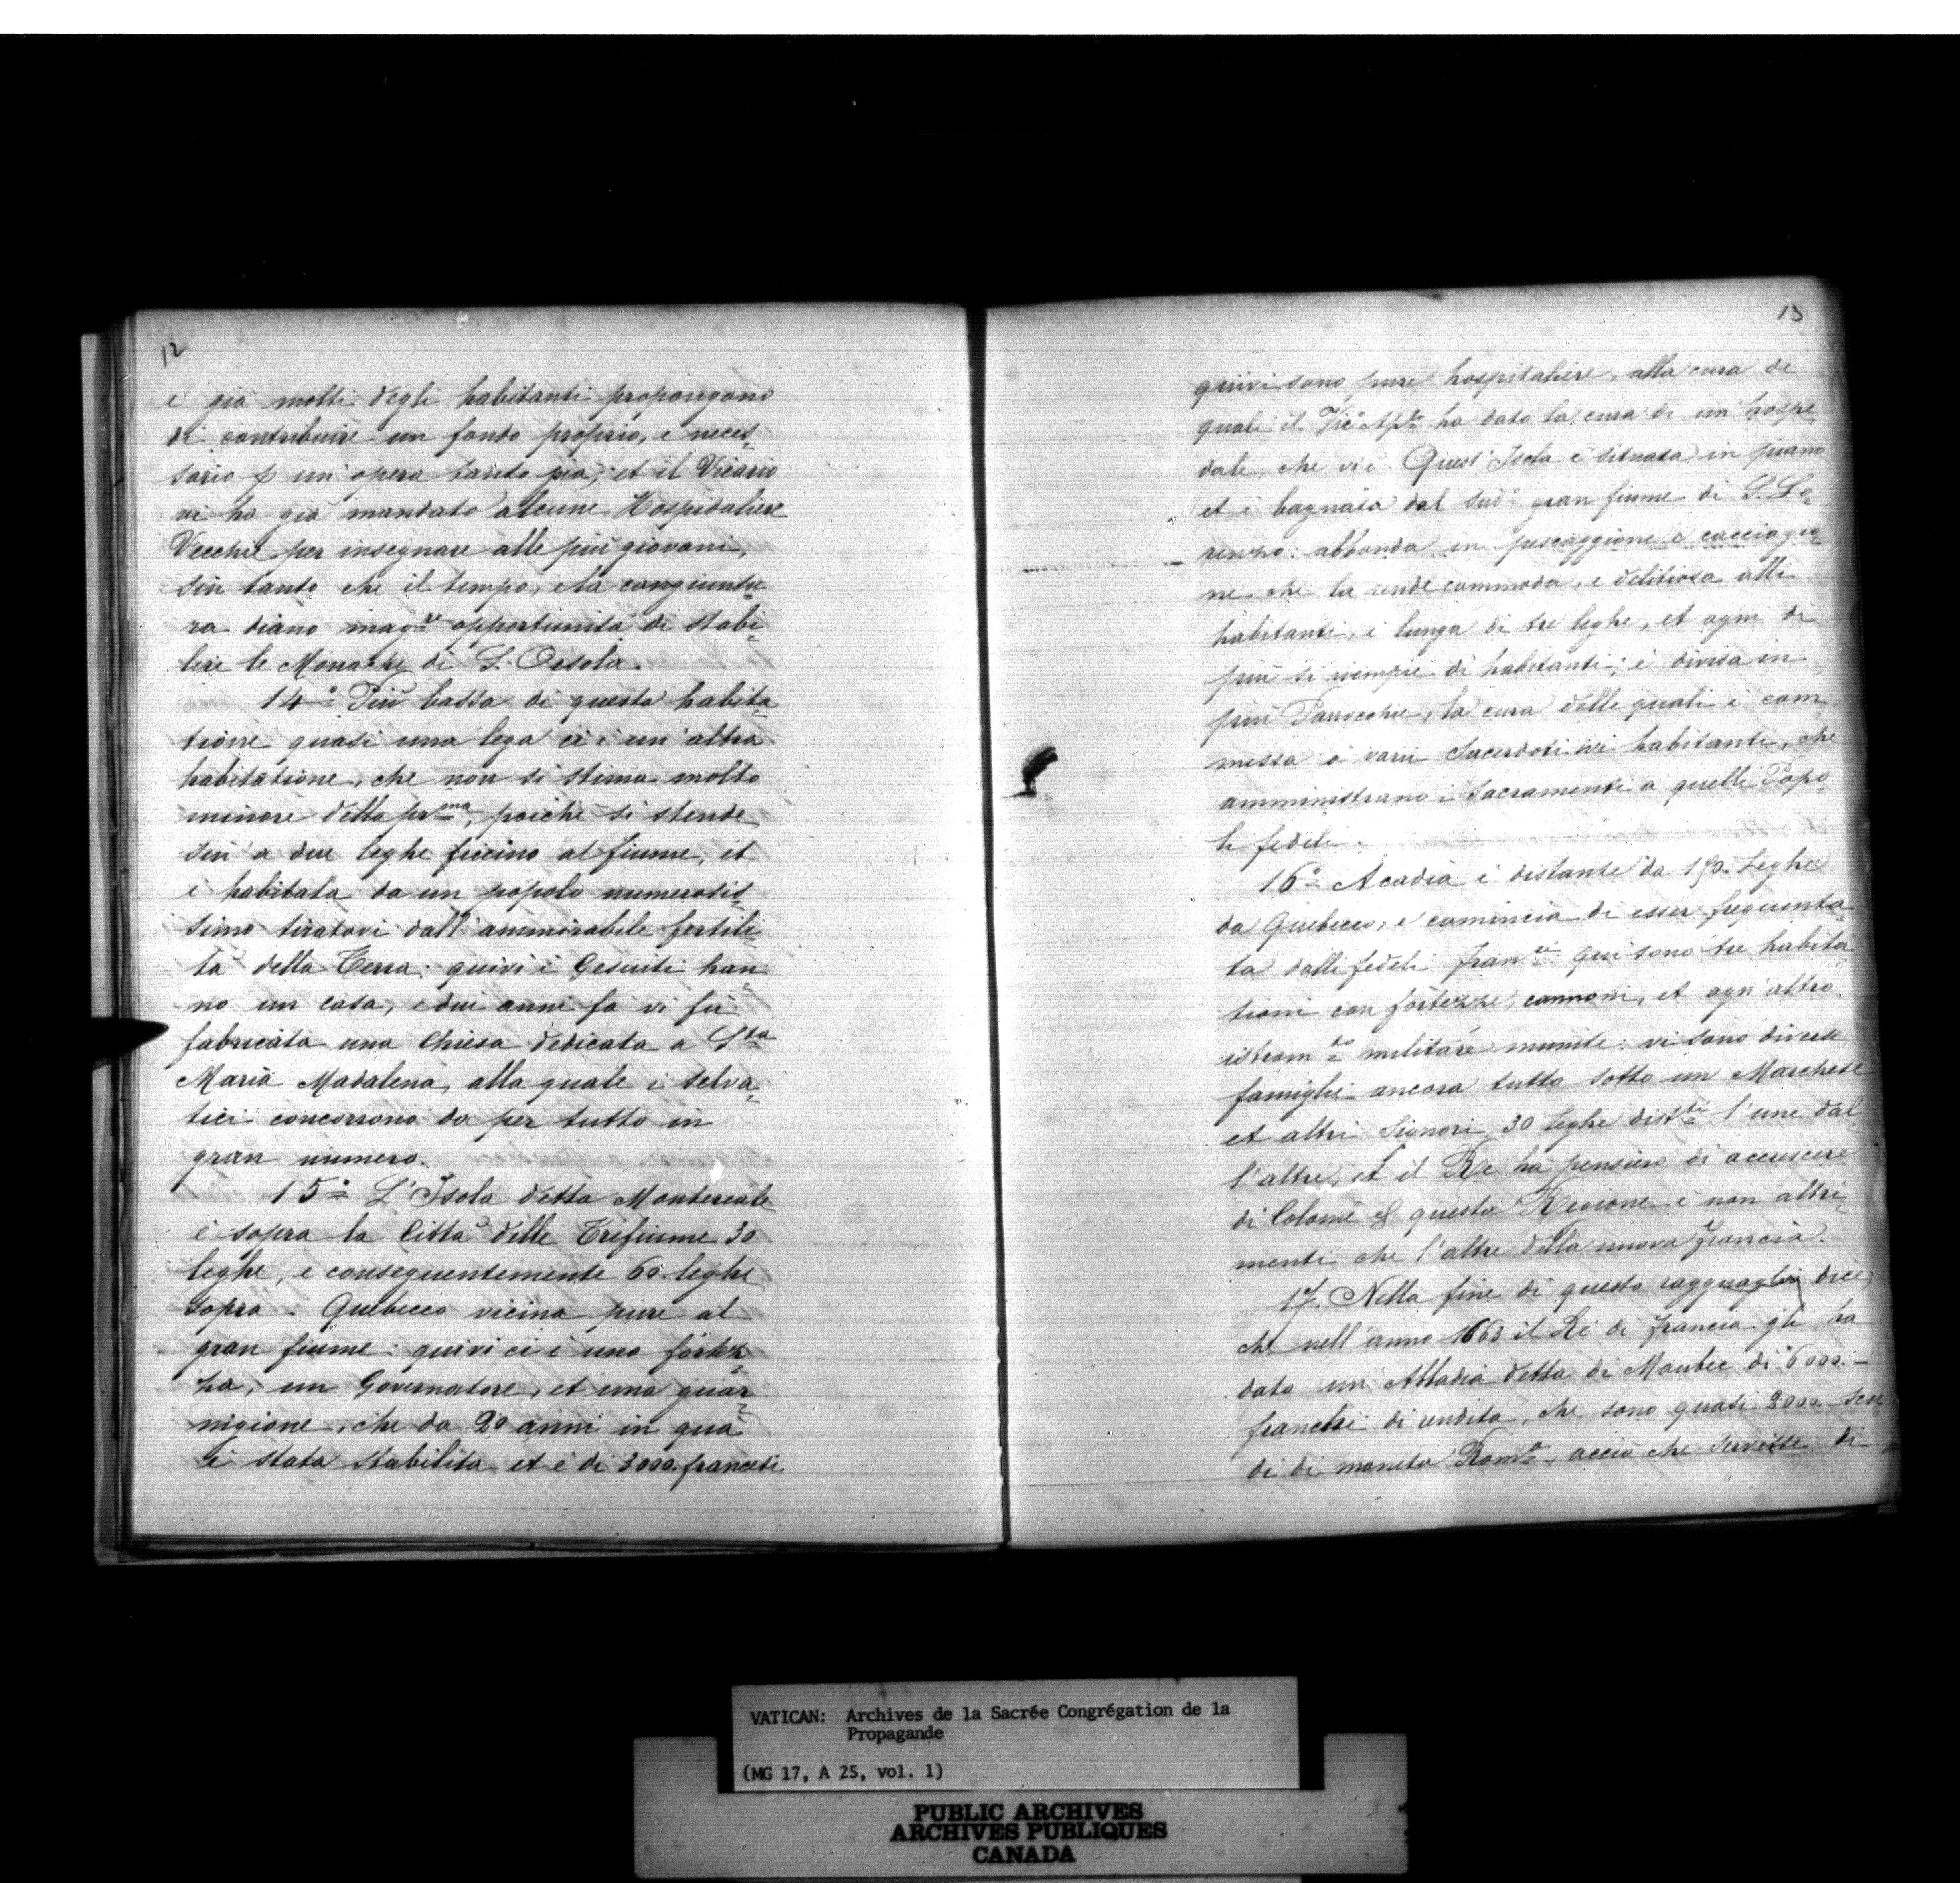 12
e già molti degli habitanti propongono
di contribuire un fondo proprio, e neces=
sario p un' opera tanto pia; et il Vicario
vi ha già mandato alcune Hospidaliere
Vecchie per insegnare alle più giovani,
sin tanto che il tempo, e la congiuntu=
ra diano mag.re opportunità di stabi=
lire le Monache di S. Orsola.
14º Più bassa di questa habita=
tione quasi una lega ci è un' altra
habitatione, che non si stima molto
minore della pr.ma, poiche si stende
sin a due leghe ficcino al fiume, et
è habitata da un popolo numerosis=
simo tiratovi dall' ammirabile fertili=
tà della Terra: quivi i Gesuiti han=
no un casa, e dui anni fa vi fù
fabricata una Chiesa dedicata a S.ta
Maria Madalena, alla quale i selva=
tici concorrono da per tutto in
gran numero.
15º L'Isola detta Montereale
è sopra la Città delle Trifiume 30
leghe, e conseguentemente 60. leghe
sopra Quebecco vicina pure al
gran fiume: quivi ci è una fortez=
za, un Governatore, et una guar=
nigione, che da 20 anni in quà
è stata stabilita et è di 3000. francesi
13
quivi sono pure hospitaliere, alla cura de
quali il Vic.º Ap.lo ha dato la cura di un hospe
dale, che vi è. Quest' Isola è situata in piano
et è bagnata dal sud.º gran fiume di S. Lo=
renzo: abbonda in pescaggione e cacciagio
ne che la rende commoda, e delitiosa alli
habitanti, è lunga di tre leghe, et ogni di
più si riempie di habitanti; è divisa in
più Parocchie, la cura delle quali è com
messa à varii Sacerdoti ivi habitanti, che
amministrano i Sacramenti a quelli Popo
li fedeli.
16º Acadia è distante da 150. Leghe
da Quebecco, e comincia di esser frequenta=
ta dalli fedeli Fran.ci: qui sono tre habita=
tioni con fortezze, cannoni, et ogn' altro
istrom.to militare munite: vi sono diverse
famiglie ancora tutto sotto un Marchese
et altri Signori, 30 leghe dist.ti l'une dal=
l'altre, et il Re ha pensiero di accrescere
di Colonie questa Regione è non altri=
menti che l'altre della nuova Francia.
17. Nella fine di questo ragguaglio dice,
che nell' anno 1663 il Rè di Francia gli ha
dato un' Abbadia detta di Maubec di 6000.-
franchi di rendita, che sono quasi 2000. scu=
di di moneta Rom.a, acciò che servisse di
VATICAN: Archives de la Sacrée Congrégation de la
Propagande
(MG 17, A 25, vol. 1)
PUBLIC ARCHIVES
ARCHIVES PUBLIQUES
CANADA